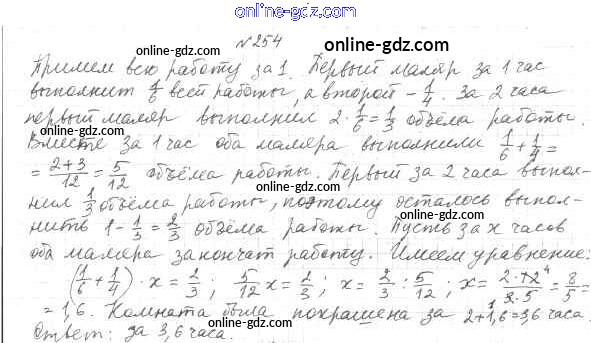 online-gdz.com
№254
online-gdz.com online-gdz.com
Примем всю работу за 1. Первый маляр за 1 час
выполнит 1/6 всей работы, а второй - 1/4. За 2 часа
online-gdz.com online-gdz.com
первый маляр выполнил 2·1/6=1/3 объёма работы.
Вместе за 1 час оба маляра выполнили 1/6+1/4=
online-gdz.com online-gdz.com
=2+3/12=5/12 объёма работы. Первый за 2 часа выпол-
online-gdz.com online-gdz.com
нил 1/3 объёма работы, поэтому осталось выпол-
нить 1-1/3=2/3 объёма работы. Пусть за x часов
online-gdz.com online-gdz.com
оба маляра закончат работу. Имеем уравнение:
(1/6+1/4)·x=2/3; 5/12x=2/3; x=2/3:5/12; x=2·12⁴/3·5=8/5=
online-gdz.com online-gdz.com
=1,6. Комната была покрашена за 2+1,6=3,6 часа.
Ответ: за 3,6 часа.
online-gdz.com